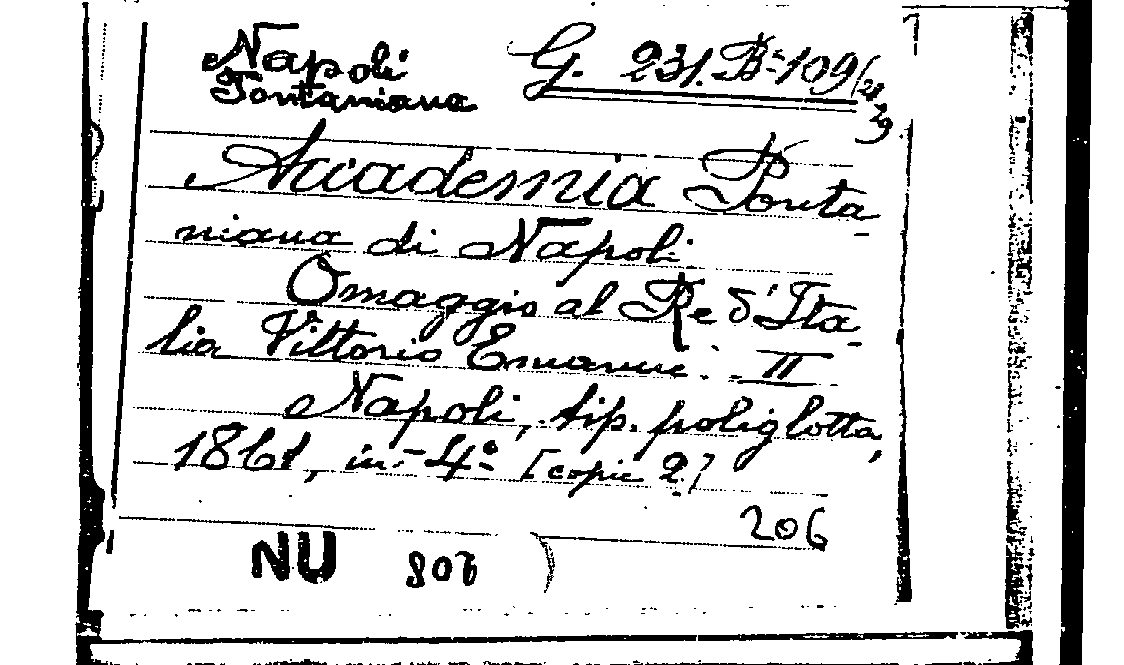 Napoli G. 231. B=109(28
Pontaniana 29)
Accademia Ponta-
niana di Napoli
Omaggio al Re d'Ita-
lia Vittorio Emanue. II
Napoli, tip. poliglotta,
1861, in-4º [copie 2]
206
NU 806